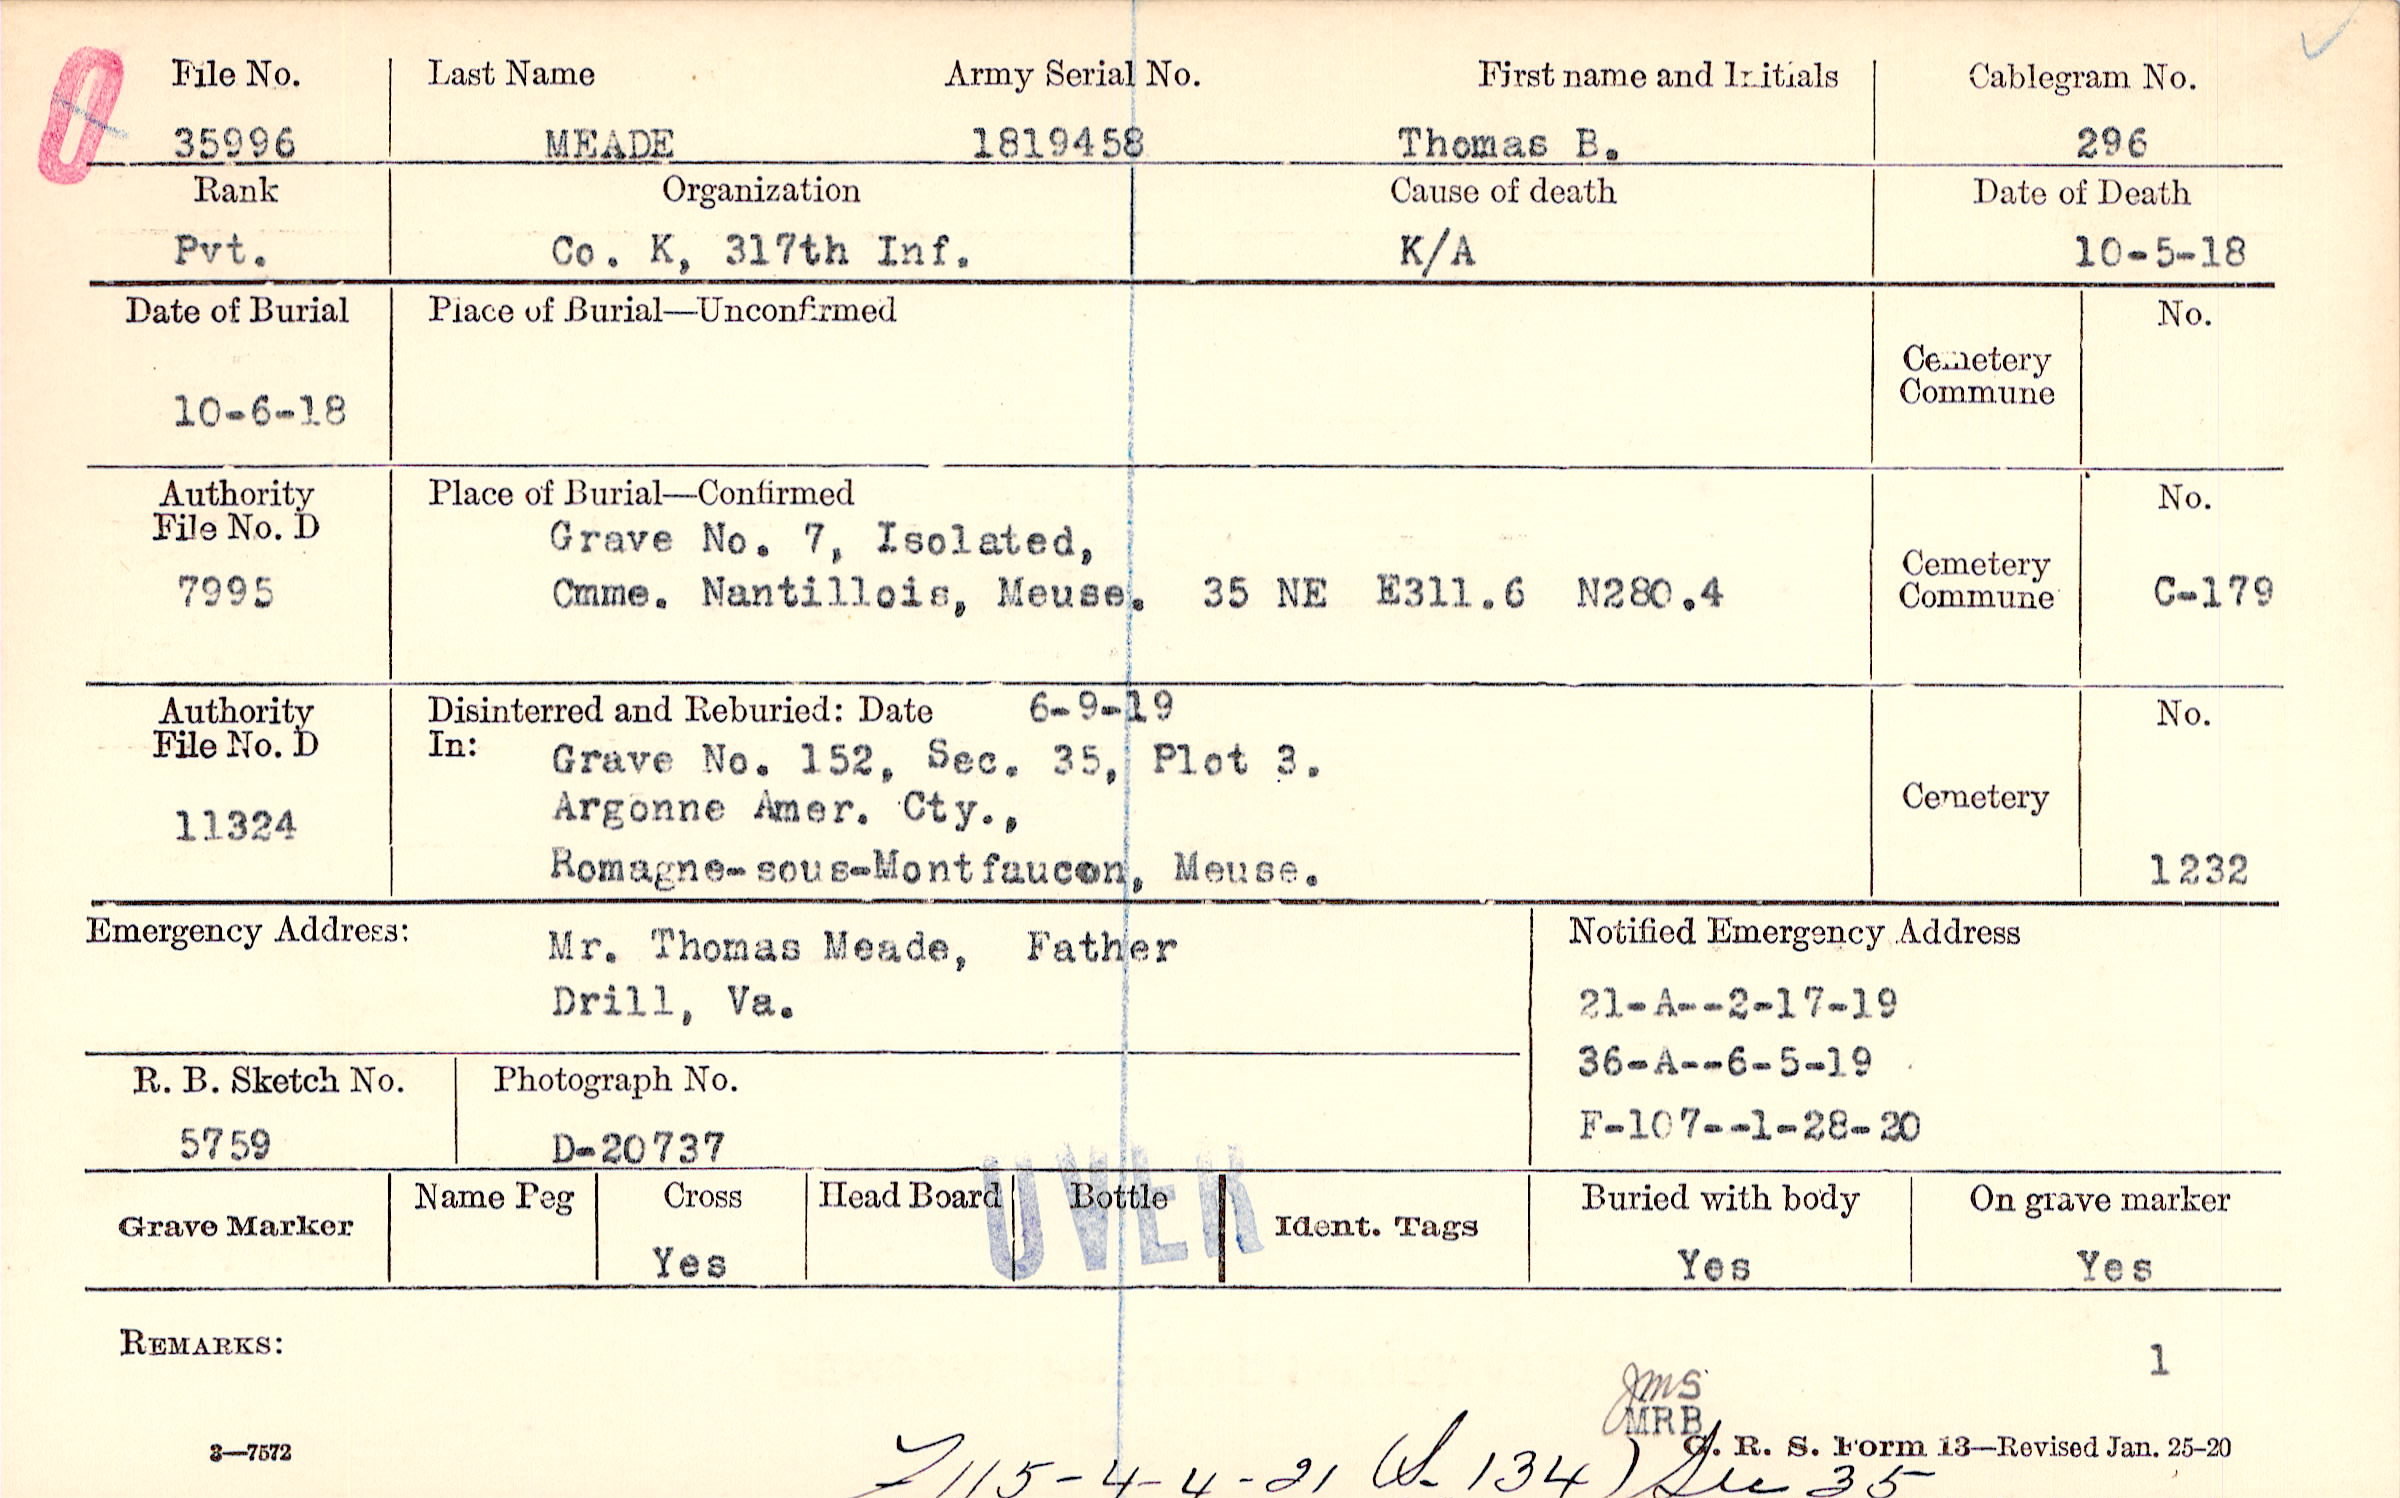 File No. Last Name Army Serial No. First name and Initials Cablegram No.
35996 MEADE 1819458 Thomas B. 296
Rank Organization Cause of death Date of Death
Pvt. Co. K, 317th Inf. K/A 10-5-18
Date of Burial Place of Burial—Unconfirmed No.
Cemetery
Commune
10-6-18
Authority Place of Burial—Confirmed No.
File No. D
Grave No. 7, Isolated,
7995 Cmme. Nantillois, Meuse. 35 NE E311.6 N280.4 Cemetery
Commune C-179
Authority Disinterred and Reburied: Date 6-9-19 No.
File No. D In:
Grave No. 152, Sec. 35, Plot 3.
11324 Argonne Amer. Cty., Cemetery
Romagne-sous-Montfaucon, Meuse. 1232
Emergency Address: Mr. Thomas Meade, Father
Drill, Va.
Notified Emergency Address
21-A--2-17-19
36-A--6-5-19
F-107--1-28-20
R. B. Sketch No. Photograph No.
5759 D-20737
OVER
Grave Marker Name Peg Cross Head Board Bottle Ident. Tags Buried with body On grave marker
Yes Yes Yes
REMARKS:
1
JMS
MRB
3—7572 G. R. S. Form 13—Revised Jan. 25-20
115-4-4-21 (S. 134) Sec 35